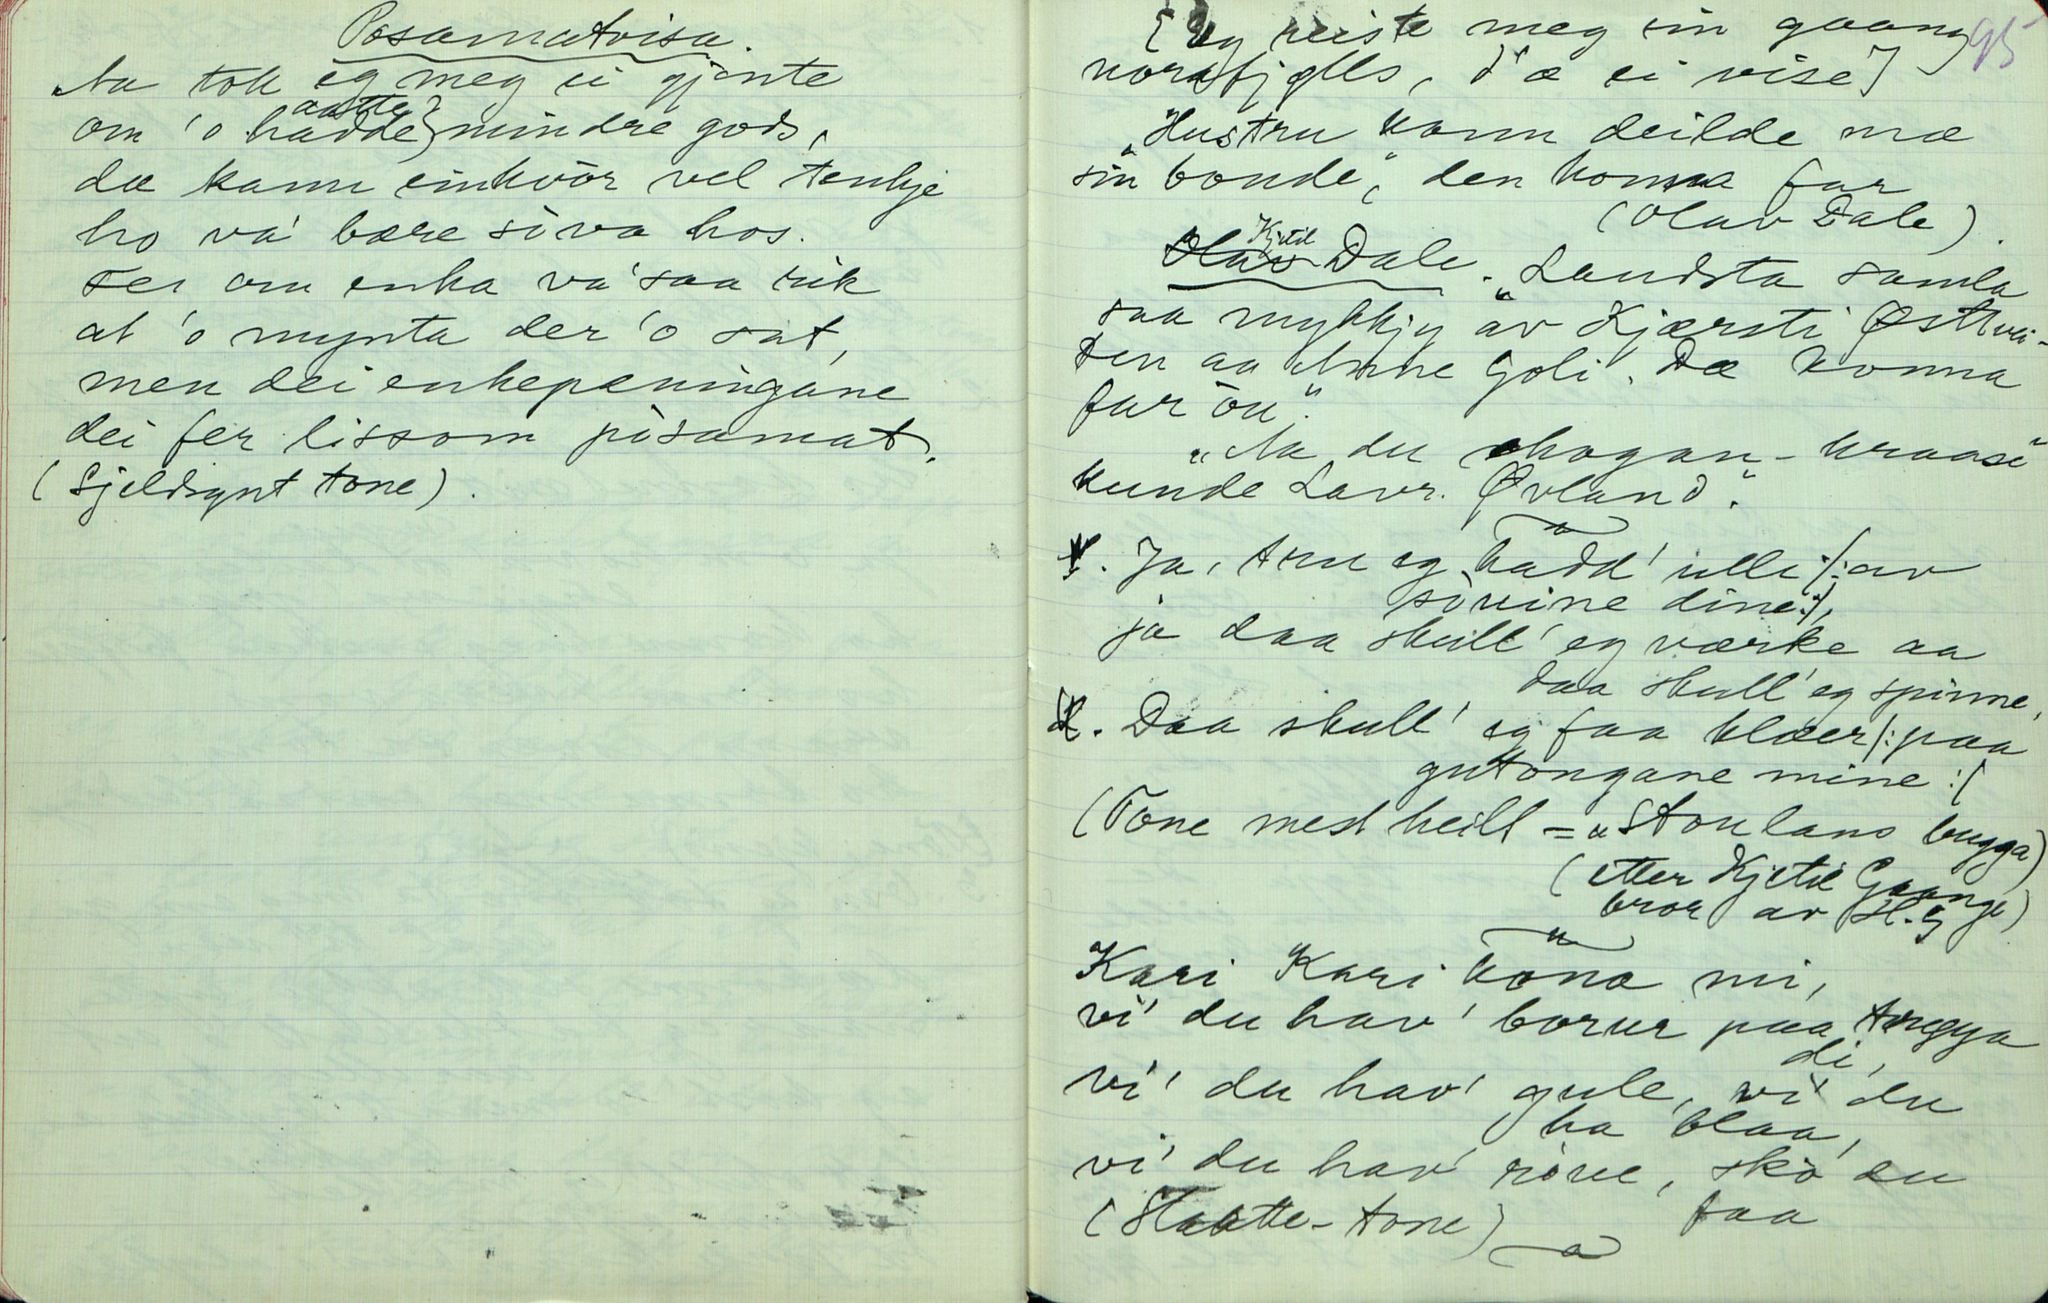 Posamatvisa.
Aa tok eg meg ei gjente
aatte}
om 'o hadde} mindre gods,
dæ kann einkvòr vel tenkje
ho va' bære sòva hos.
Fer om enka va' saa rik
at 'o mynta der 'o sat,
men dei enkepæningane
dei fer lissom pòsamat.
(Sjeldsynt tone).
95
[Eg reiste meg ein gaang
norafjølls, d'æ ei vise]
"Hustru kom deilde mæ
sin bonde", den konna far
(Olav Dale).
Kjetil
Olav Dale. "Landsta samla
saa mykkjy av Kjærsti Østtvei-
ten aa Anne Goli. Dæ konna
far òu".
"Aa du skogan-kraasi"
kunde Lavr. Øvland".
Ja, tru eg hadd' ulli /: av
sòuine dine :/,
ja daa skull' eg værke aa
daa skull' eg spinne,
Daa skull' eg faa klæer /: paa
gutongane mine :/
(Tone mest heilt = "Stoulans bugga)
(etter Kjetil Gaange
bror av H.G)
Kari Kari kona mi,
vi' du hav' borur paa trugga
di,
vi' du hav' gule, vi' du
ha blaa,
vi' du hav'ròue, skò du
faa
(Slaatte-tone)